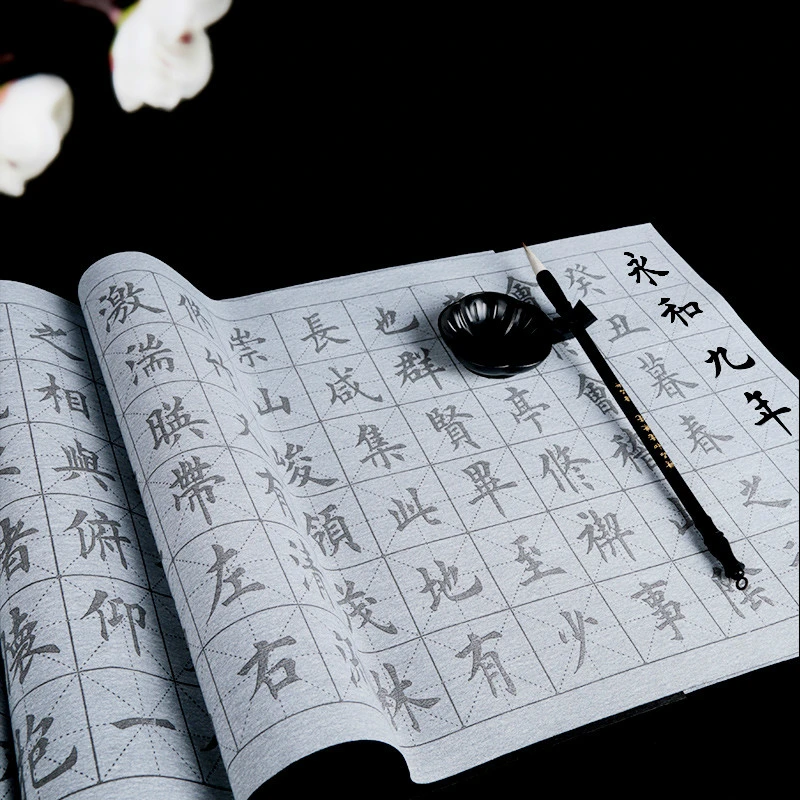 永和九年
癸丑暮春之
會會稽山陰
亭修禊事
也群賢畢至少
長咸集此地有
崇山峻領茂林
激湍暎帶左右
之相與俯仰一
懷抱